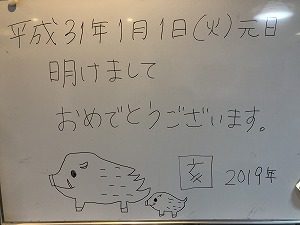 平成31年1月1日(火)元日
明けまして
おめでとうございます。
亥
2019年